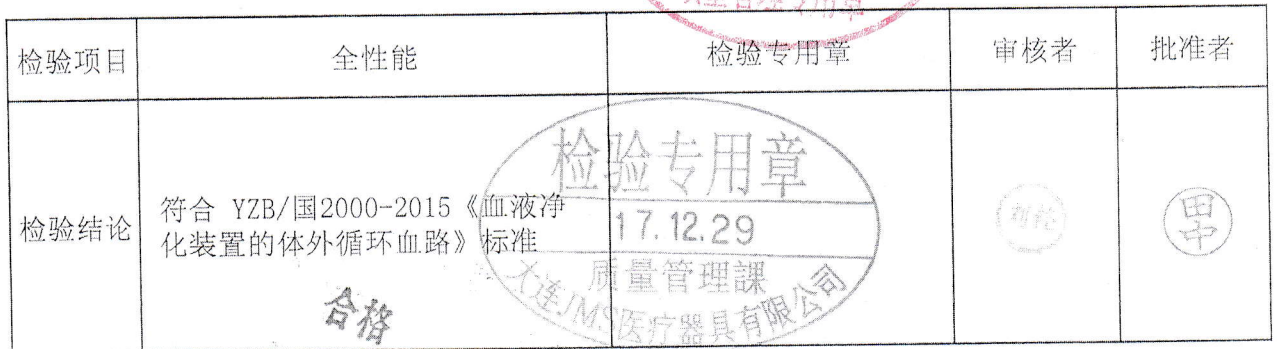 专用章
检验项目 全性能 检验专用章 审核者 批准者
检验结论
符合 YZB/国2000-2015《血液净
化装置的体外循环血路》标准
合格
检验专用章
17.12.29
质量管理課
大连JMS医疗器具有限公司
田中